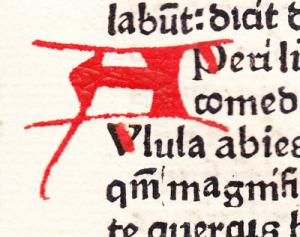 labūt: dicit d
APeri li
comed
Vlula abies
qm̄ magnifi
te quercus b